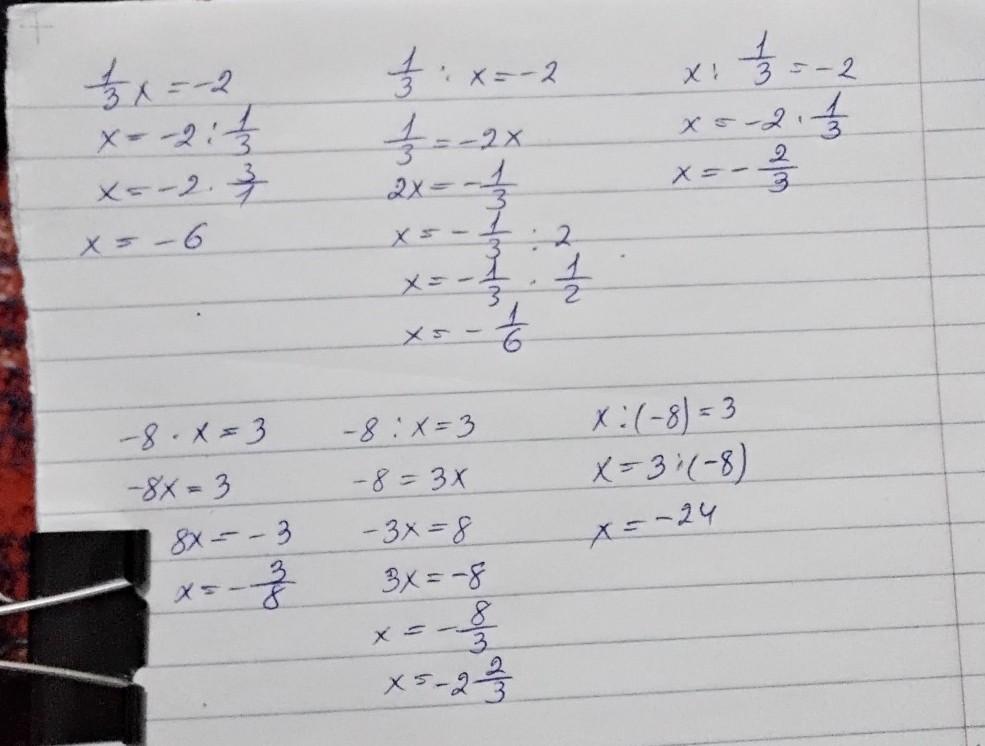 1/3 x = -2
x = -2 : 1/3
x = -2 · 3/1
x = -6
1/3 : x = -2
1/3 = -2x
2x = -1/3
x = -1/3 : 2
x = -1/3 · 1/2
x = -1/6
x : 1/3 = -2
x = -2 · 1/3
x = -2/3
-8 · x = 3
-8x = 3
8x = -3
x = -3/8
-8 : x = 3
-8 = 3x
-3x = 8
3x = -8
x = -8/3
x = -2 2/3
x : (-8) = 3
x = 3 · (-8)
x = -24